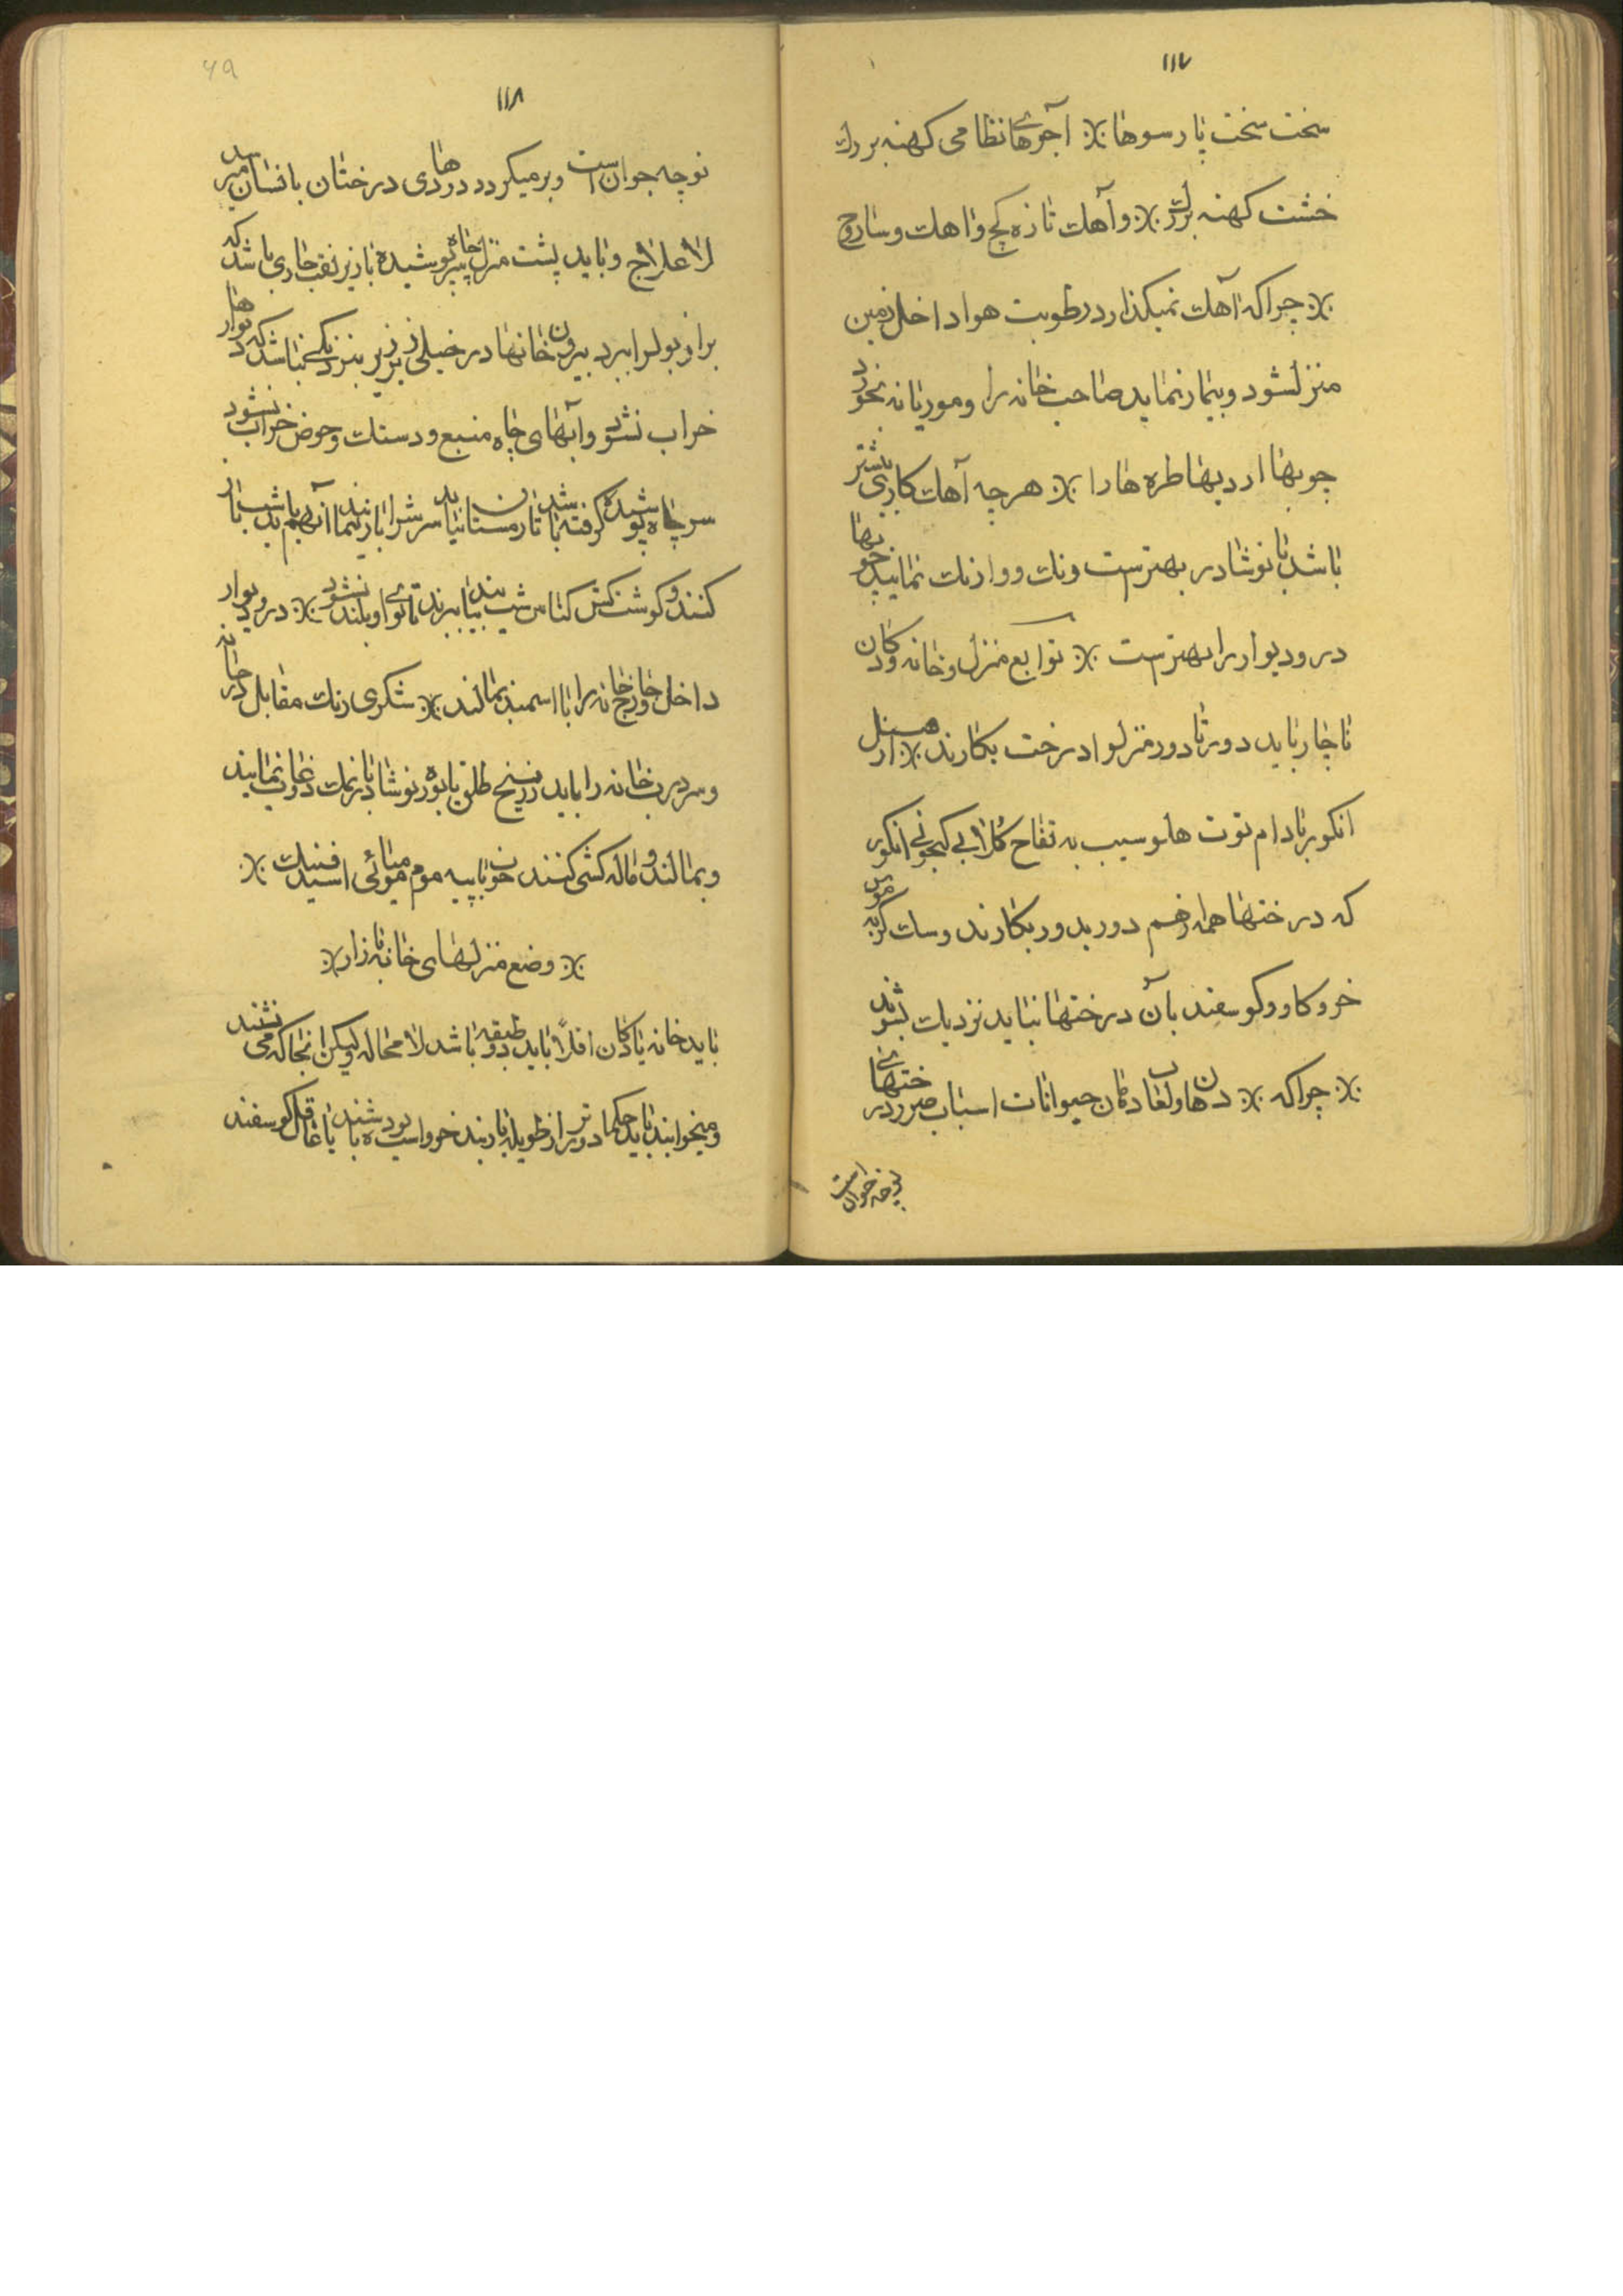 ۱۱۷
سخت سخت پارسوها ※ آجرهای نظامی کهنه بزرك
خشت کهنه بزرك ※ و آهك تازه کچ و اهك و ساروج
※ چراکه آهك نمیکذارد رطوبت هوا داخل زمین
منزل شود و بیمار نماید صاحب خانه را و موریانه نخورد
چوبها اردیها طره ها را ※ هرچه آهك کاری بیشتر
باشد با نوشادر بهترست ونك ووازنك نمایید چوبها
در و دیوار را بهترست ※ توابع منزل و خانه و دکان
ناچار باید دور تا دور منزل و ا درخت بکارند ※ از
انکور بادام توت هلو سیب به تفاح کلابی انکور
که درختها همه رقم دور بدور بکارند و سك کربه موش
خر و کاو و کوسفند بآن درختها نباید نزدیك بشوند
※ چراکه ※ دهان و لعاب دهان حیوانات اسباب ضرر درختهای
نوچه جوان است
۶۹
۱۱۸
نوچه جوان است و برمیکردد دودهای درختان بانسان میرسد
لاعلاج و باید پشت منزل چاه پوشیده باز زیر نقب جاری باشد که
براز و بول را ببرد بیرون خانها در خیلی زیر زیر بنزدیکی نباشد که دیوارها
خراب نشود و آبهای چاه منبع و دستك و حوض خراب نشود
سر چاه پوشیده کرفته باشد تا زمستان نیاید سرش را باز نمایند آنهم باید شب باز
کنند و کوشت کش کناس شب بیایند ببرند تا بوی او بلند نشود ※ در و دیوار
داخل و خارج خانه را با اسمند بمالند ※ شکری رنك مقابل در خانه
و سردرب خانه را باید زرنیخ طلق با بوره نوشادر با نمك ذوب نمایند
و بمالند و ماله کشی کنند خوب با پیه موم میائی اسید فنیك ※
※ وضع منزلهای خانه بازار ※
باید خانه یا دکان اقلاً باید دو طبقه باشد لامحاله ولیکن انجا که می نشیند
و میخوابند باید حکما دورتر از طویله باربند خر و اسب باشند یا کوسفند